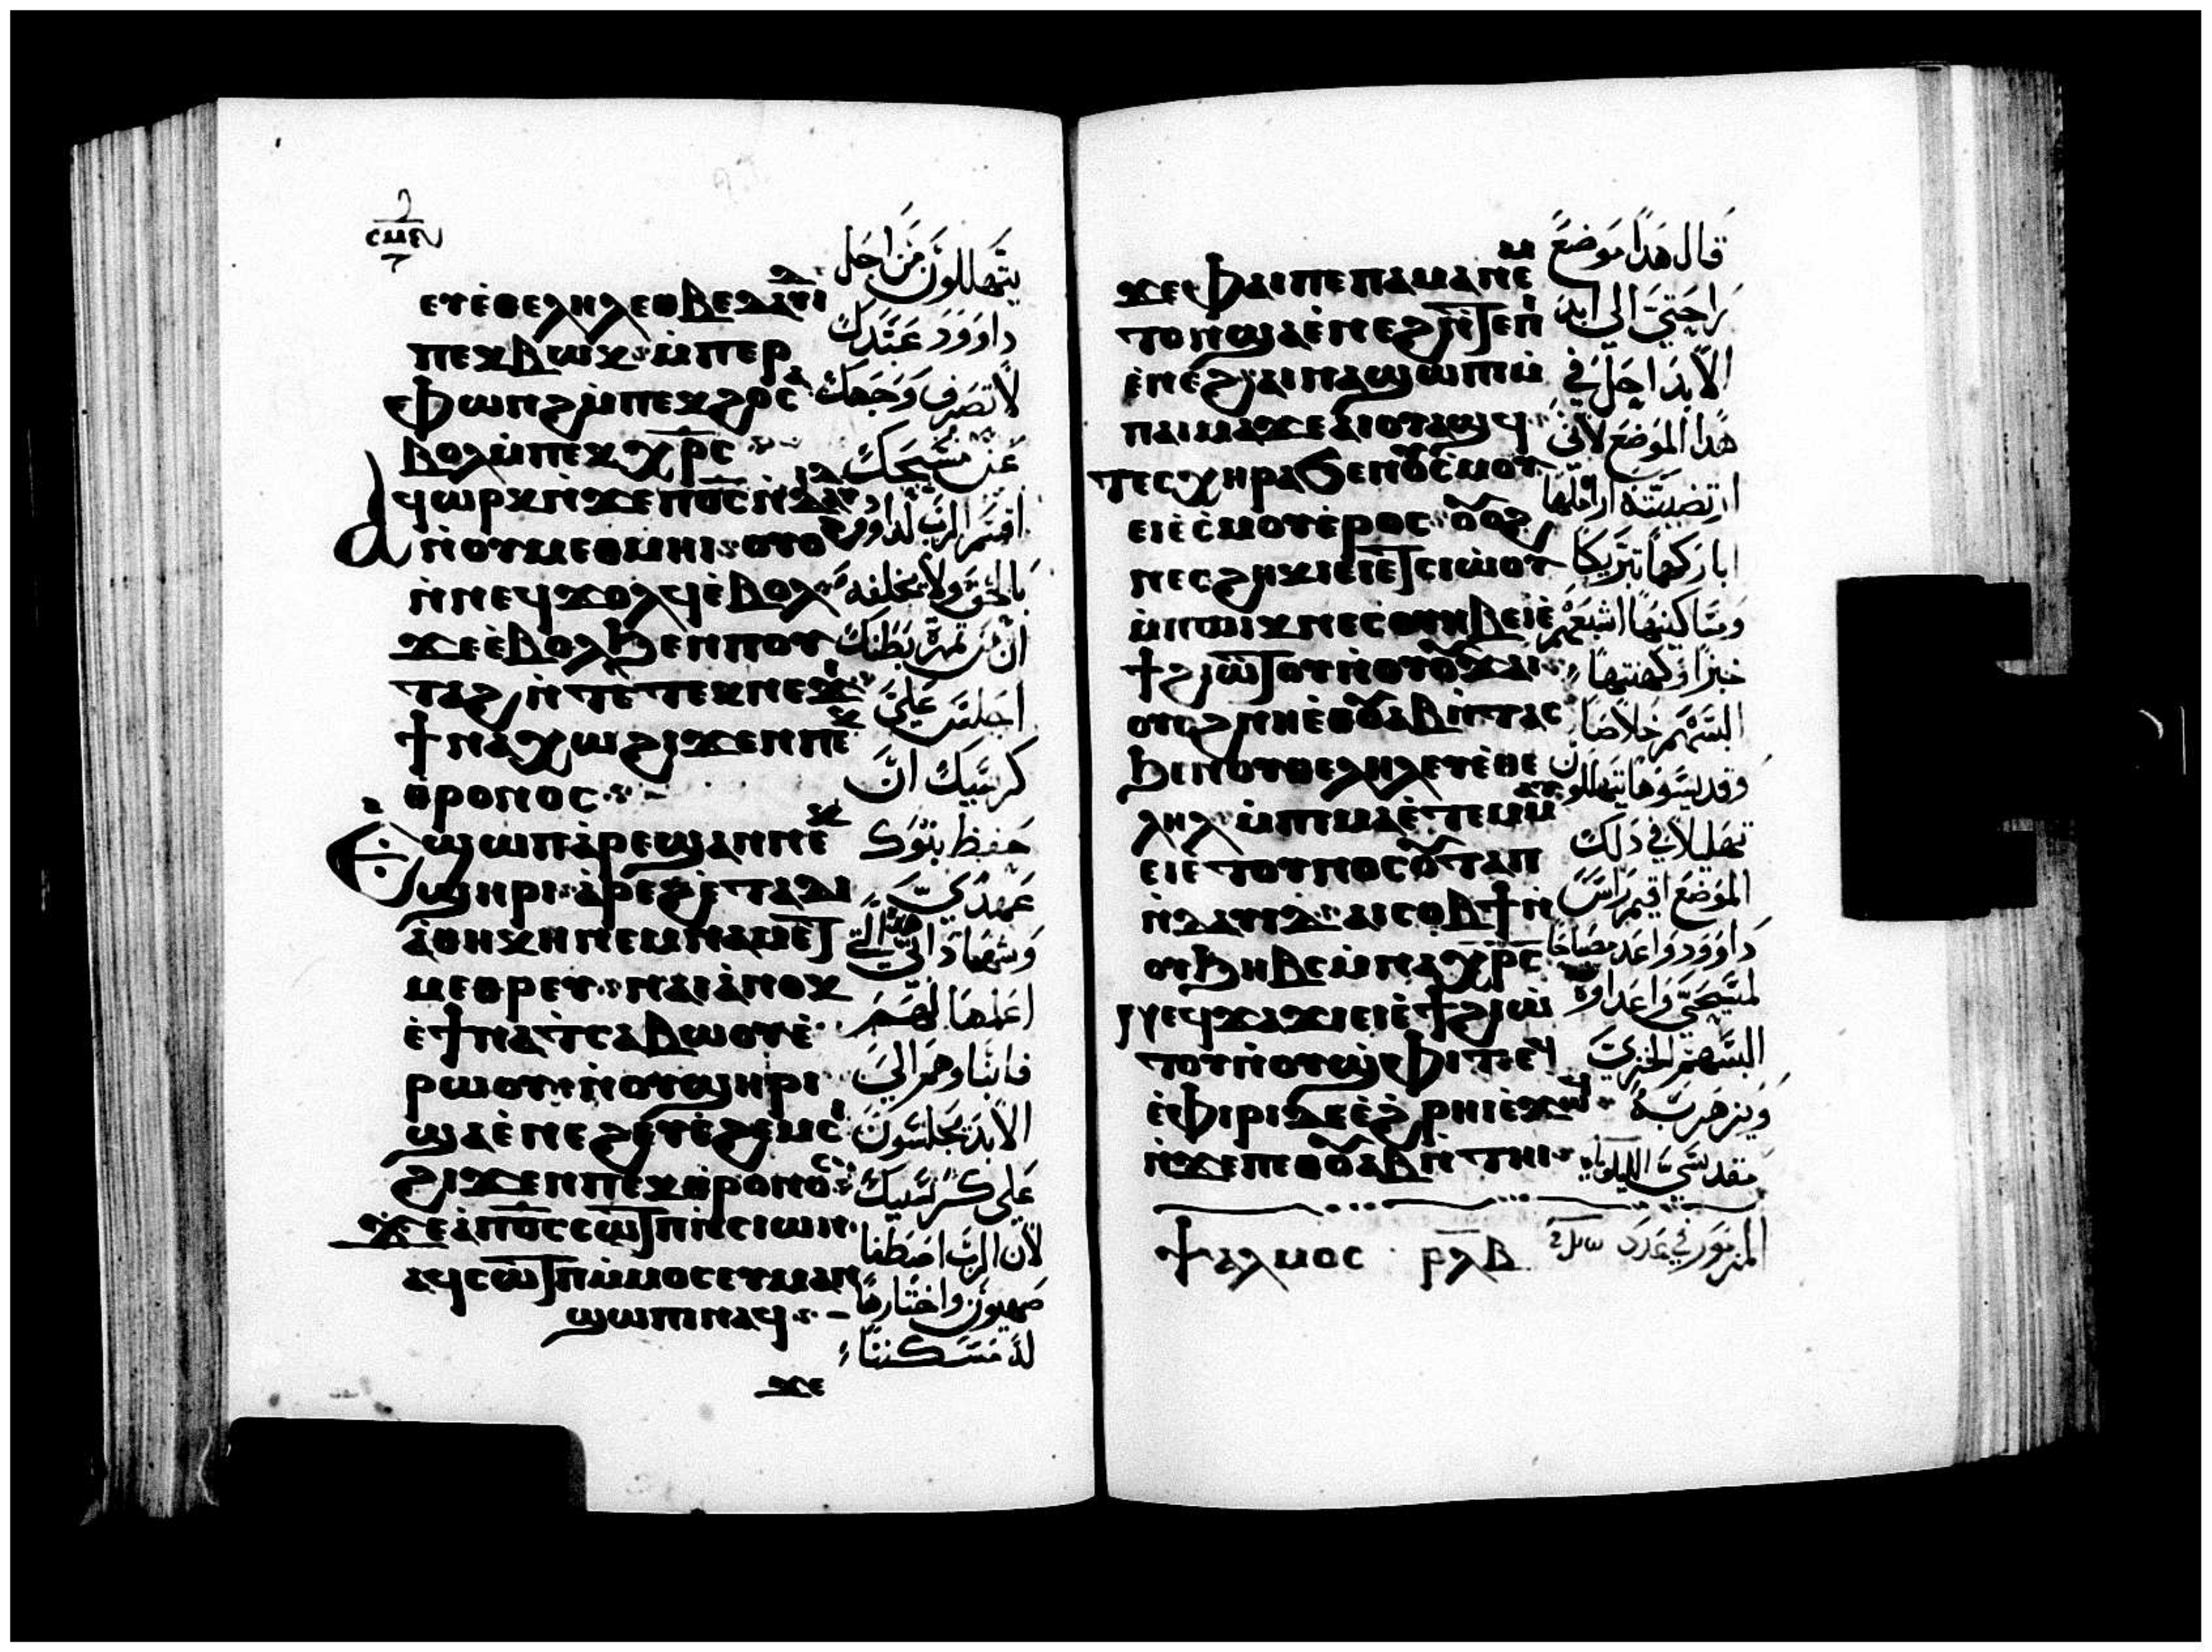 ⲉⲩⲉ̀ⲑⲉⲗⲏⲗ ⲉⲑⲃⲉ ⲇⲁⲩⲓⲇ
ⲡⲉⲕⲃⲱⲕ ⲙ̀ⲡⲉⲣ
ⲫⲱⲛϩ ⲙ̀ⲡⲉⲕϩⲟ ⲥⲁ
ⲃⲟⲗ ⲙ̀ⲡⲉⲕⲭ̅ⲣ̅ⲥ
ⲁϥⲱⲣⲕ ⲛ̀ϫⲉ ⲡ⳪ ⲛ̀ⲇⲁⲩⲓⲇ
ⲛ̀ⲟⲩⲙⲉⲑⲙⲏⲓ ⲟⲩⲟϩ
ⲛ̀ⲛⲉϥϫⲟⲗϥ ⲉ̀ⲃⲟⲗ
ϫⲉ ⲉ̀ⲃⲟⲗϧⲉⲛ ⲡⲟⲩ
ⲧⲁϩ ⲛ̀ⲧⲉ ⲧⲉⲕⲛⲉϫⲓ
ϯⲛⲁⲭⲱ ϩⲓϫⲉⲛ ⲡⲉⲕ
ⲑⲣⲟⲛⲟⲥ
ⲉϣⲱⲡ ⲁ̀ⲣⲉϣⲁⲛ ⲛⲉⲕ
ϣⲏⲣⲓ ⲁ̀ⲣⲉϩ ⲉ̀ⲧⲁⲇⲓ
ⲁ̀ⲑⲏⲕⲏ ⲛⲉⲙ ⲛⲁⲙⲉⲧ
ⲙⲉⲑⲣⲉⲩ ⲛⲁⲓ ⲁ̀ⲛⲟⲕ
ⲉ̀ϯⲛⲁⲧ̀ⲥⲁⲃⲱⲟⲩ ⲉ̀
ⲣⲱⲟⲩ ⲛ̀ⲟⲩϣⲏⲣⲓ
ϣⲁ ⲉ̀ⲛⲉϩ ⲉⲩⲉ̀ϩⲉⲙⲥⲓ
ϩⲓϫⲉⲛ ⲡⲉⲕⲑⲣⲟⲛⲟⲥ
ϫⲉ ⲁ̀ ⲡ⳪ ⲥⲱⲧⲡ ⲛ̀ⲥⲓⲱⲛ
ⲁϥⲥⲱⲧⲡ ⲙ̀ⲙⲟⲥ ⲉⲩⲙⲁⲛ
ϣⲱⲡⲓ ⲛⲁϥ
ϫⲉ
يتهللون من اجل
داوود عبدك
لا تصرف وجهك
عن مسيحك
اقسم الرب لداوود
بالحق ولا يخلفه
ان من ثمرة بطنك
اجلس علي
كرسيك ان
حفظ بنوك
عهدي
وشهاداتي التي
اعلمها لهم
فابناوهم الي
الابد يجلسون
علي كرسيك
لان الرب اصطفا
صهيون واختارها
له مسكنا
ϫⲉ ⲫⲁⲓ ⲡⲉ ⲡⲁⲙⲁⲛⲉⲙ
ⲧⲟⲛ ϣⲁ ⲉ̀ⲛⲉϩ ⲛ̀ⲧⲉ ⲡⲓ
ⲉ̀ⲛⲉϩ ⲁⲓⲛⲁϣⲱⲡⲓ ⲙ̀
ⲡⲁⲓⲙⲁ ϫⲉ ⲁⲓⲟⲩⲁϣϥ
ⲧⲉⲥⲭⲏⲣⲁ ϧⲉⲛ ⲟⲩⲥ̀ⲙⲟⲩ
ⲉⲓⲉ̀ⲥ̀ⲙⲟⲩ ⲉ̀ⲣⲟⲥ ⲟⲩⲟϩ
ⲛⲉⲥϩⲏⲕⲓ ⲉⲓⲉ̀ⲧⲥⲓⲱⲟⲩ
ⲙ̀ⲡⲱⲓⲕ ⲛⲉⲥⲟⲩⲏⲃ ⲉⲓⲉ̀
ϯ ϩⲓⲱⲧⲟⲩ ⲛ̀ⲟⲩⲟⲩϫⲁⲓ
ⲟⲩⲟϩ ⲛⲏⲉⲑⲟⲩⲁⲃ ⲛ̀ⲧⲁⲥ
ϧⲉⲛ ⲟⲩⲑⲉⲗⲏⲗ ⲉⲩⲉ̀ⲑⲉ
ⲗⲏⲗ ⲙ̀ⲡⲓⲙⲁ ⲉ̀ⲧⲉⲙⲙⲁⲩ
ⲉⲓⲉ̀ⲧⲟⲩⲛⲟⲥ ⲟⲩⲧⲁⲡ
ⲛ̀ⲇⲁⲩⲓⲇ ⲁⲓⲥⲟⲃϯ ⲛ̀
ⲟⲩϧⲏⲃⲥ ⲙ̀ⲡⲁⲭ̅ⲣ̅ⲥ
ⲛⲉϥϫⲁϫⲓ ⲉⲓⲉ̀ϯ ϩⲓⲱ
ⲧⲟⲩ ⲛ̀ⲟⲩϣⲫⲓⲧ ⲉϥ
ⲉ̀ⲫⲓⲣⲓ ⲇⲉ ⲉ̀ϩⲣⲏⲓ ⲉ̀ϫⲱϥ
ⲛ̀ϫⲉ ⲡⲉⲑⲟⲩⲁⲃ ⲛ̀ⲧⲏⲓ
ⲯⲁⲗⲙⲟⲥ ⲣ̅ⲗ̅ⲃ̅
قال هدا موضع
راحتي الي ابد
الابد احل في
هدا الموضع لاني
ارتضيته اراملها
اباركها تبريكا
ومساكينها اشبعهم
خبزا وكهنتها
البسهم خلاصا
وقديسوها يتهللون
تهليلا في دلك
الموضع اقيم راس
داوود واعد مصباحا
لمسيحي واعداوه
البسهم الخزي
ويزهر به
مقدسي الليلويا
المزمور في عدد